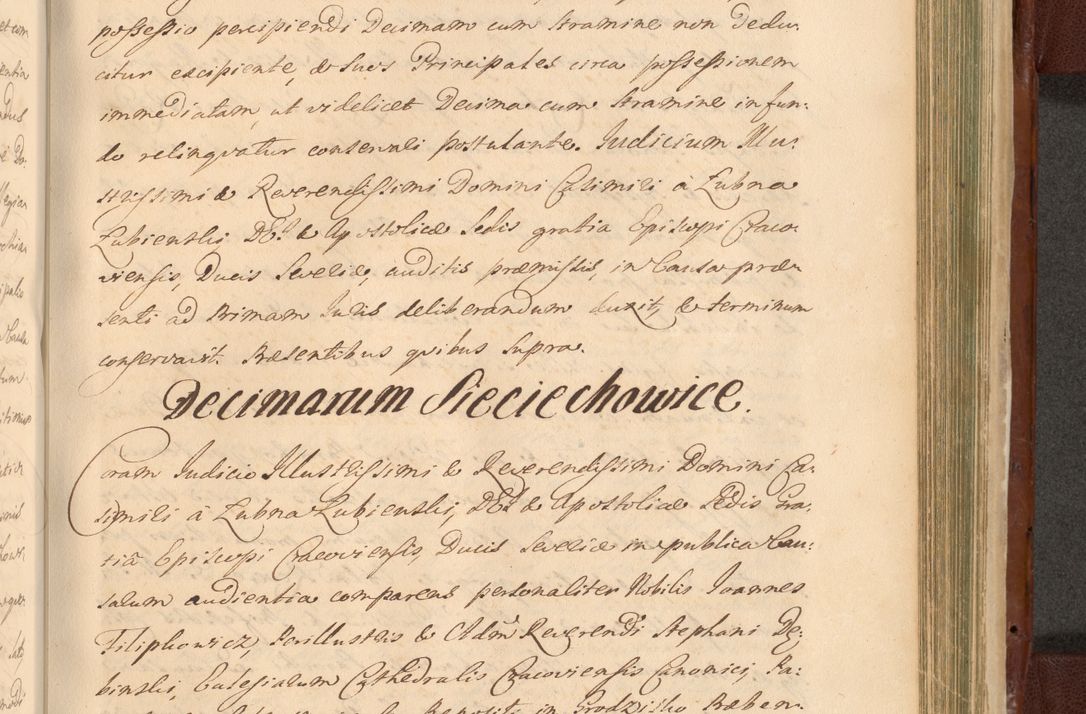 possessio percipiendi Decimam cum stramine non dedu-
citur excipiente, & suos Principales circa possessionem
immediatam, ut videlicet Decima cum stramine in fun-
do relinqvatur conservari postulante. Judicium Illu-
strissimi & Reverendissimi Domini Casimiri à Łubna
Łubienski DEI & Apostolicæ Sedis gratia Episcopi Craco-
viensis, Ducis Severiæ, auditis præmissis, in Causa præ-
senti ad Primam Juris deliberandum duxit, & terminum
conservavit. Præsentibus quibus supra.
Decimarum Sieciechowice.
Coram Judicio Illustrissimi & Reverendissimi Domini Ca-
simiri à Łubna Łubienski, DEI & Apostolicæ Sedis Gra-
tiâ Episcopi Cracoviensis, Ducis Severiæ in publica Cau-
sarum audientia comparens personaliter Nobilis Joannes
Filipkowicz, Perillustris & Adm Reverendi Stephani Dę-
binski, Ecclesiarum Cathedralis Cracoviensis Canonici, Ra-
Præpositi in Grodzisko Præben-